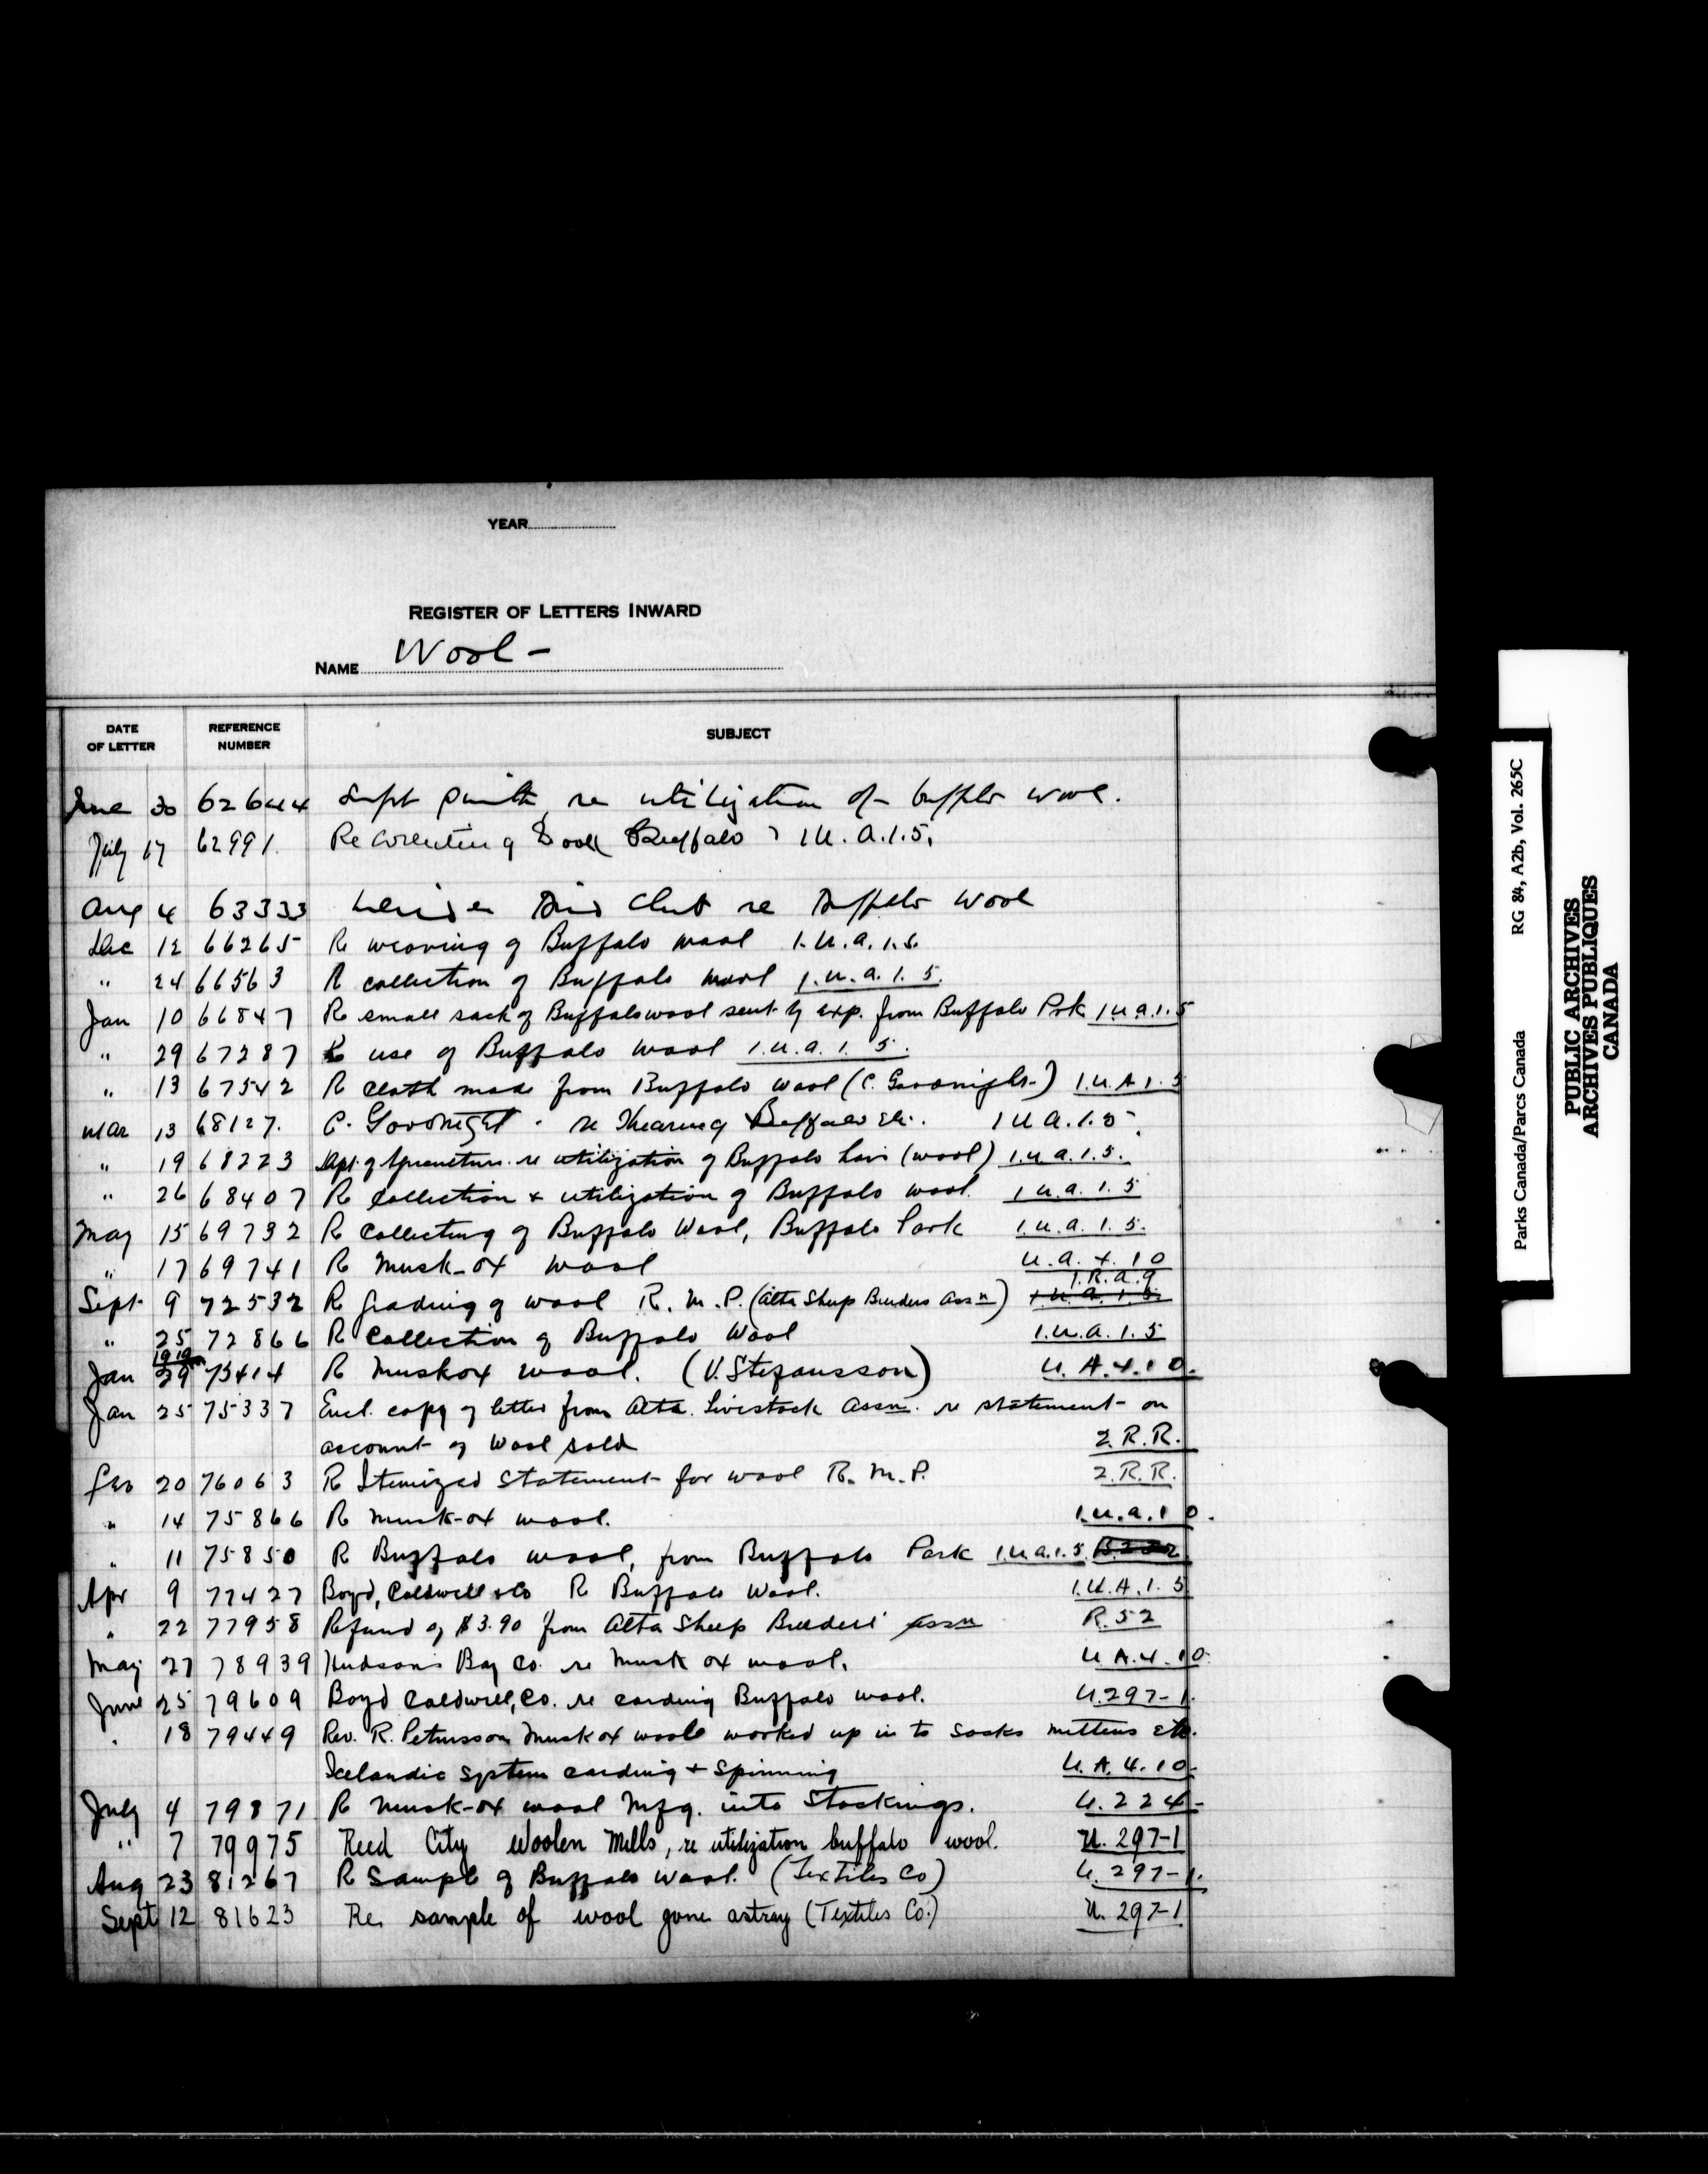 YEAR
REGISTER OF LETTERS INWARD
NAME Wool -
DATE OF LETTER REFERENCE NUMBER SUBJECT
June 30 62644 Supt Smith re utilization of buffalo wool.
July 17 62991. Re collecting Buffalo 1 U.A.1.5.
Aug 4 63333 Club re Buffalo Wool
Dec 12 66265 R weaving of Buffalo wool 1.U.a.1.5.
" 24 66563 R collection of Buffalo wool 1.U.a.1.5.
Jan 10 66847 R small sack of Buffalo wool sent by exp. from Buffalo Prk 1 U a.1.5
" 29 67287 R use of Buffalo wool 1.U.a.1.5.
" 13 67542 R cloth made from Buffalo wool (C. Goodnight-) 1.U.A 1.5
Mar 13 68127. C. Goodnight - re Shearing Buffalo etc. 1 U A.1.5.
" 19 68223 Dept. of Agriculture. re utilization of Buffalo hair (wool) 1.U.a.1.5.
" 26 68407 R Collection & utilization of Buffalo wool. 1 U.a.1.5
May 15 69732 R Collecting of Buffalo Wool, Buffalo Park 1.U.a.1.5.
" 17 69741 R Musk-ox wool U.a.4.10
1.R.a.9
Sept 9 72532 R grading of wool R.M.P. (Alta Sheep Breeders Assn) 1.U.a.1.5.
" 25 72866 R Collection of Buffalo Wool 1.U.a.1.5
1919
Jan 29 75414 R Muskox wool. (V. Stefansson) U.A.4.10.
Jan 25 75337 Encl. copy of letter from Alta. Livestock Assn. re statement on
account of Wool sold 2.R.R.
Feb 20 76063 R Itemized Statement for wool R.M.P. 2.R.R.
" 14 75866 R Musk-ox wool. 1.U.a.10.
" 11 75850 R Buffalo wool, from Buffalo Park 1.U.a.1.5
Apr 9 77427 Boyd, Caldwell & Co R Buffalo Wool. 1.U.A.1.5
" 22 77958 Refund of $3.90 from Alta Sheep Breeders' Assn R.52
May 27 78939 Hudson's Bay Co. re Musk ox wool. U.A.4.10.
June 25 79609 Boyd Caldwell, Co. re carding Buffalo wool. U.297-1.
" 18 79449 Rev. R. Petursson Musk ox wool worked up in to socks mittens etc.
Icelandic system carding & spinning U.A.4.10.
July 4 79871 R Musk-ox wool Mfg. into Stockings. U.224-
" 7 79975 Reed City Woolen Mills, re utilization buffalo wool. U.297-1
Aug 23 81267 R Sample of Buffalo Wool. (Textiles Co) U.297-1.
Sept 12 81623 Re. sample of wool gone astray (Textiles Co.) U.297-1
Parks Canada/Parcs Canada RG 84, A2b, Vol. 265C
PUBLIC ARCHIVES
ARCHIVES PUBLIQUES
CANADA